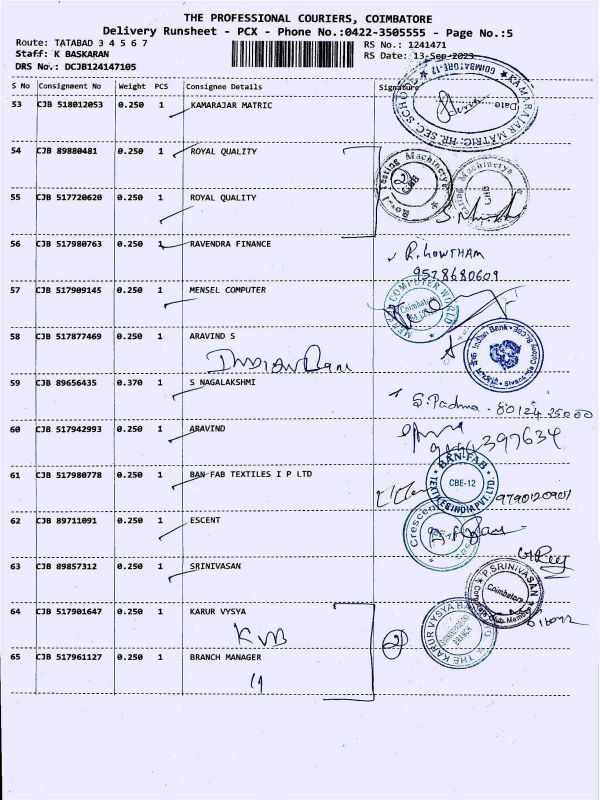 THE PROFESSIONAL COURIERS, COIMBATORE
Delivery Runsheet - PCX - Phone No.:0422-3505555 - Page No.:5
Route: TATABAD 3 4 5 6 7 RS No.: 1241471
Staff: K BASKARAN RS Date: 13-Sep-2023
DRS No.: DCJB124147105
S No Consignment No Weight PCS Consignee Details Signature
53 CJB 518012053 0.250 1 KAMARAJAR MATRIC
KAMARAJAR MATRIC. HR. SEC. SCHOOL COIMBATORE-12 Date
54 CJB 89880481 0.250 1 ROYAL QUALITY
Testing Machinerys CBE 2
55 CJB 517720620 0.250 1 ROYAL QUALITY
56 CJB 517980763 0.250 1 RAVENDRA FINANCE
R. GOWTHAM
9578680609
57 CJB 517909145 0.250 1 MENSEL COMPUTER
COMPUTER WORLD Coimbatore
58 CJB 517877469 0.250 1 ARAVIND S
INDIAN Bank
Indian Bank Colony
59 CJB 89656435 0.370 1 S NAGALAKSHMI
S. Padma
60 CJB 517942993 0.250 1 ARAVIND
61 CJB 517980778 0.250 1 BAN FAB TEXTILES I P LTD
BAN-FAB TEXTILES INDIA PVT. LTD. CBE-12
9790120907
62 CJB 89711091 0.250 1 ESCENT
Crescent
63 CJB 89857312 0.250 1 SRINIVASAN
P. SRINIVASAN Coimbatore Club Member
64 CJB 517901647 0.250 1 KARUR VYSYA
KVB
2
THE KARUR VYSYA BANK BRANCH
65 CJB 517961127 0.250 1 BRANCH MANAGER